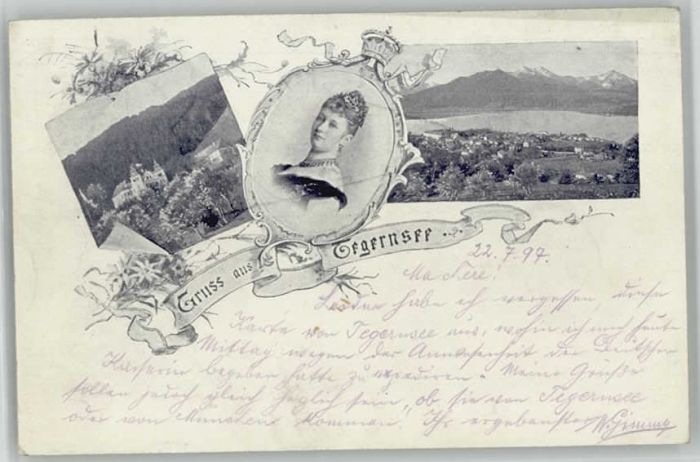 Gruss aus Tegernsee
22.7.97.
Leider habe ich vergessen, diese
Karte von Tegernsee aus, wohin ich mich heute
Mittag wegen der Anwesenheit der Deutschen
Kaiserin begeben hatte zu expedieren. Meine Grüße
sollen jedoch gleich sein, ob sie von Tegernsee
oder von München kommen. Ihr ergebenster